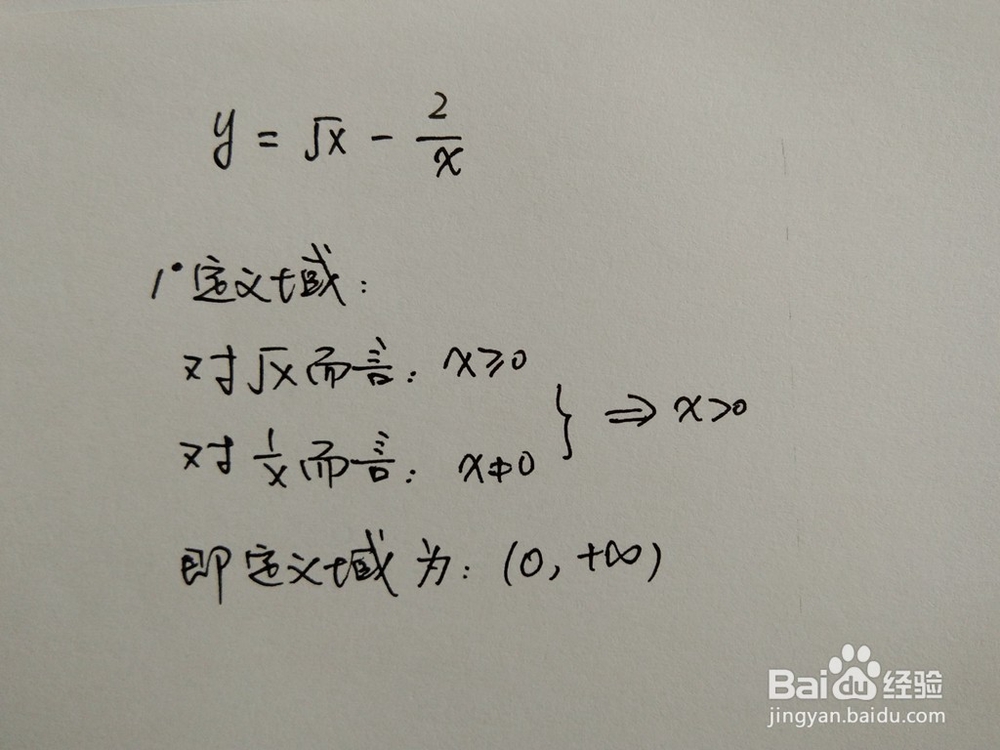 y = √x - 2/x
1° 定义域:
对√x而言: x≥0
对1/x而言: x≠0
} ⇒ x>0
即定义域为: (0, +∞)
Baidu经验
jingyan.baidu.com